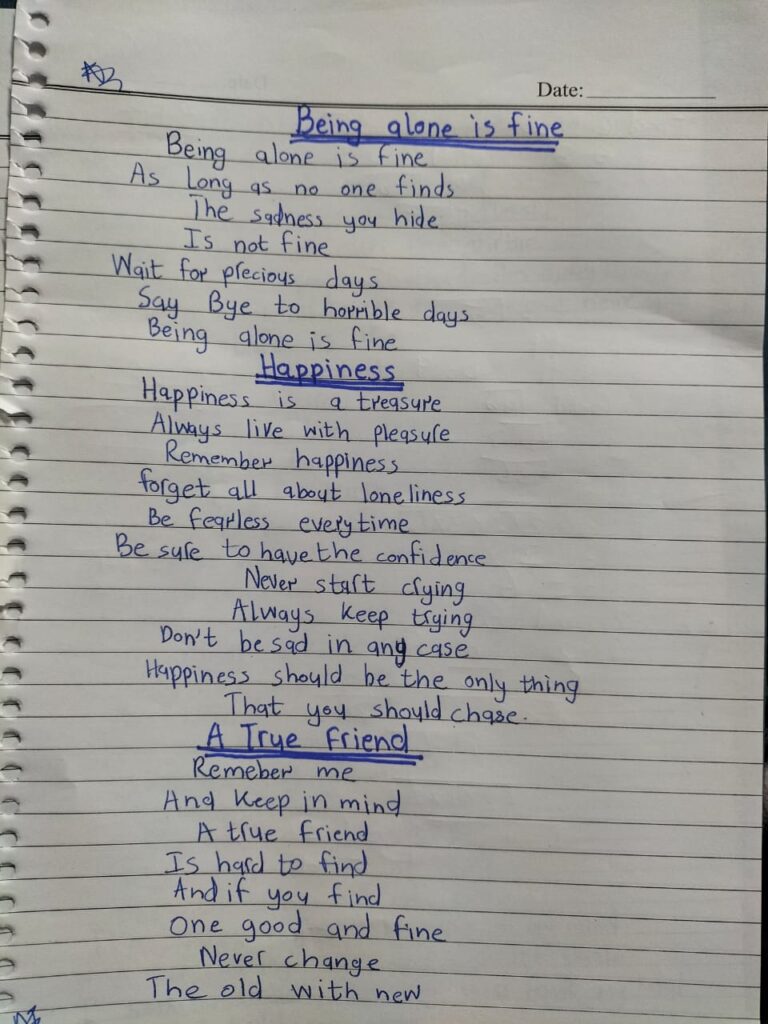 Date:
Being alone is fine
Being alone is fine
As Long as no one finds
The sadness you hide
Is not fine
Wait for precious days
Say Bye to horrible days
Being alone is fine
Happiness
Happiness is a treasure
Always live with pleasure
Remember happiness
forget all about loneliness
Be fearless everytime
Be sure to have the confidence
Never start crying
Always keep trying
Don't be sad in any case
Happiness should be the only thing
That you should chase.
A True friend
Remeber me
And Keep in mind
A true friend
Is hard to find
And if you find
One good and fine
Never change
The old with new